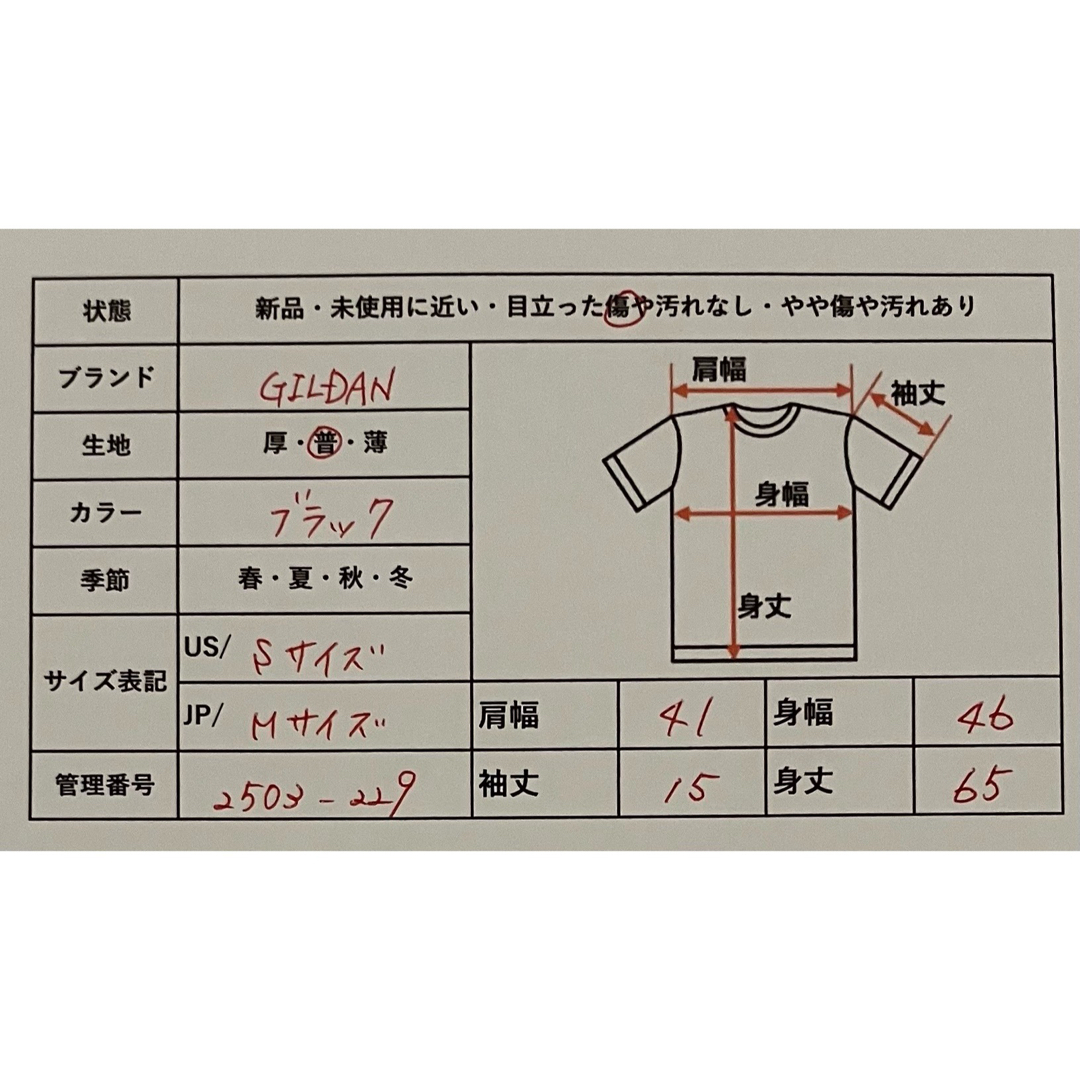 状態 新品・未使用に近い・目立った傷や汚れなし・やや傷や汚れあり
ブランド GILDAN
生地 厚・普・薄
カラー ブラック
季節 春・夏・秋・冬
サイズ表記
US/ Sサイズ
JP/ Mサイズ
管理番号 2503-229
肩幅
袖丈
身幅
身丈
肩幅 41 身幅 46
袖丈 15 身丈 65